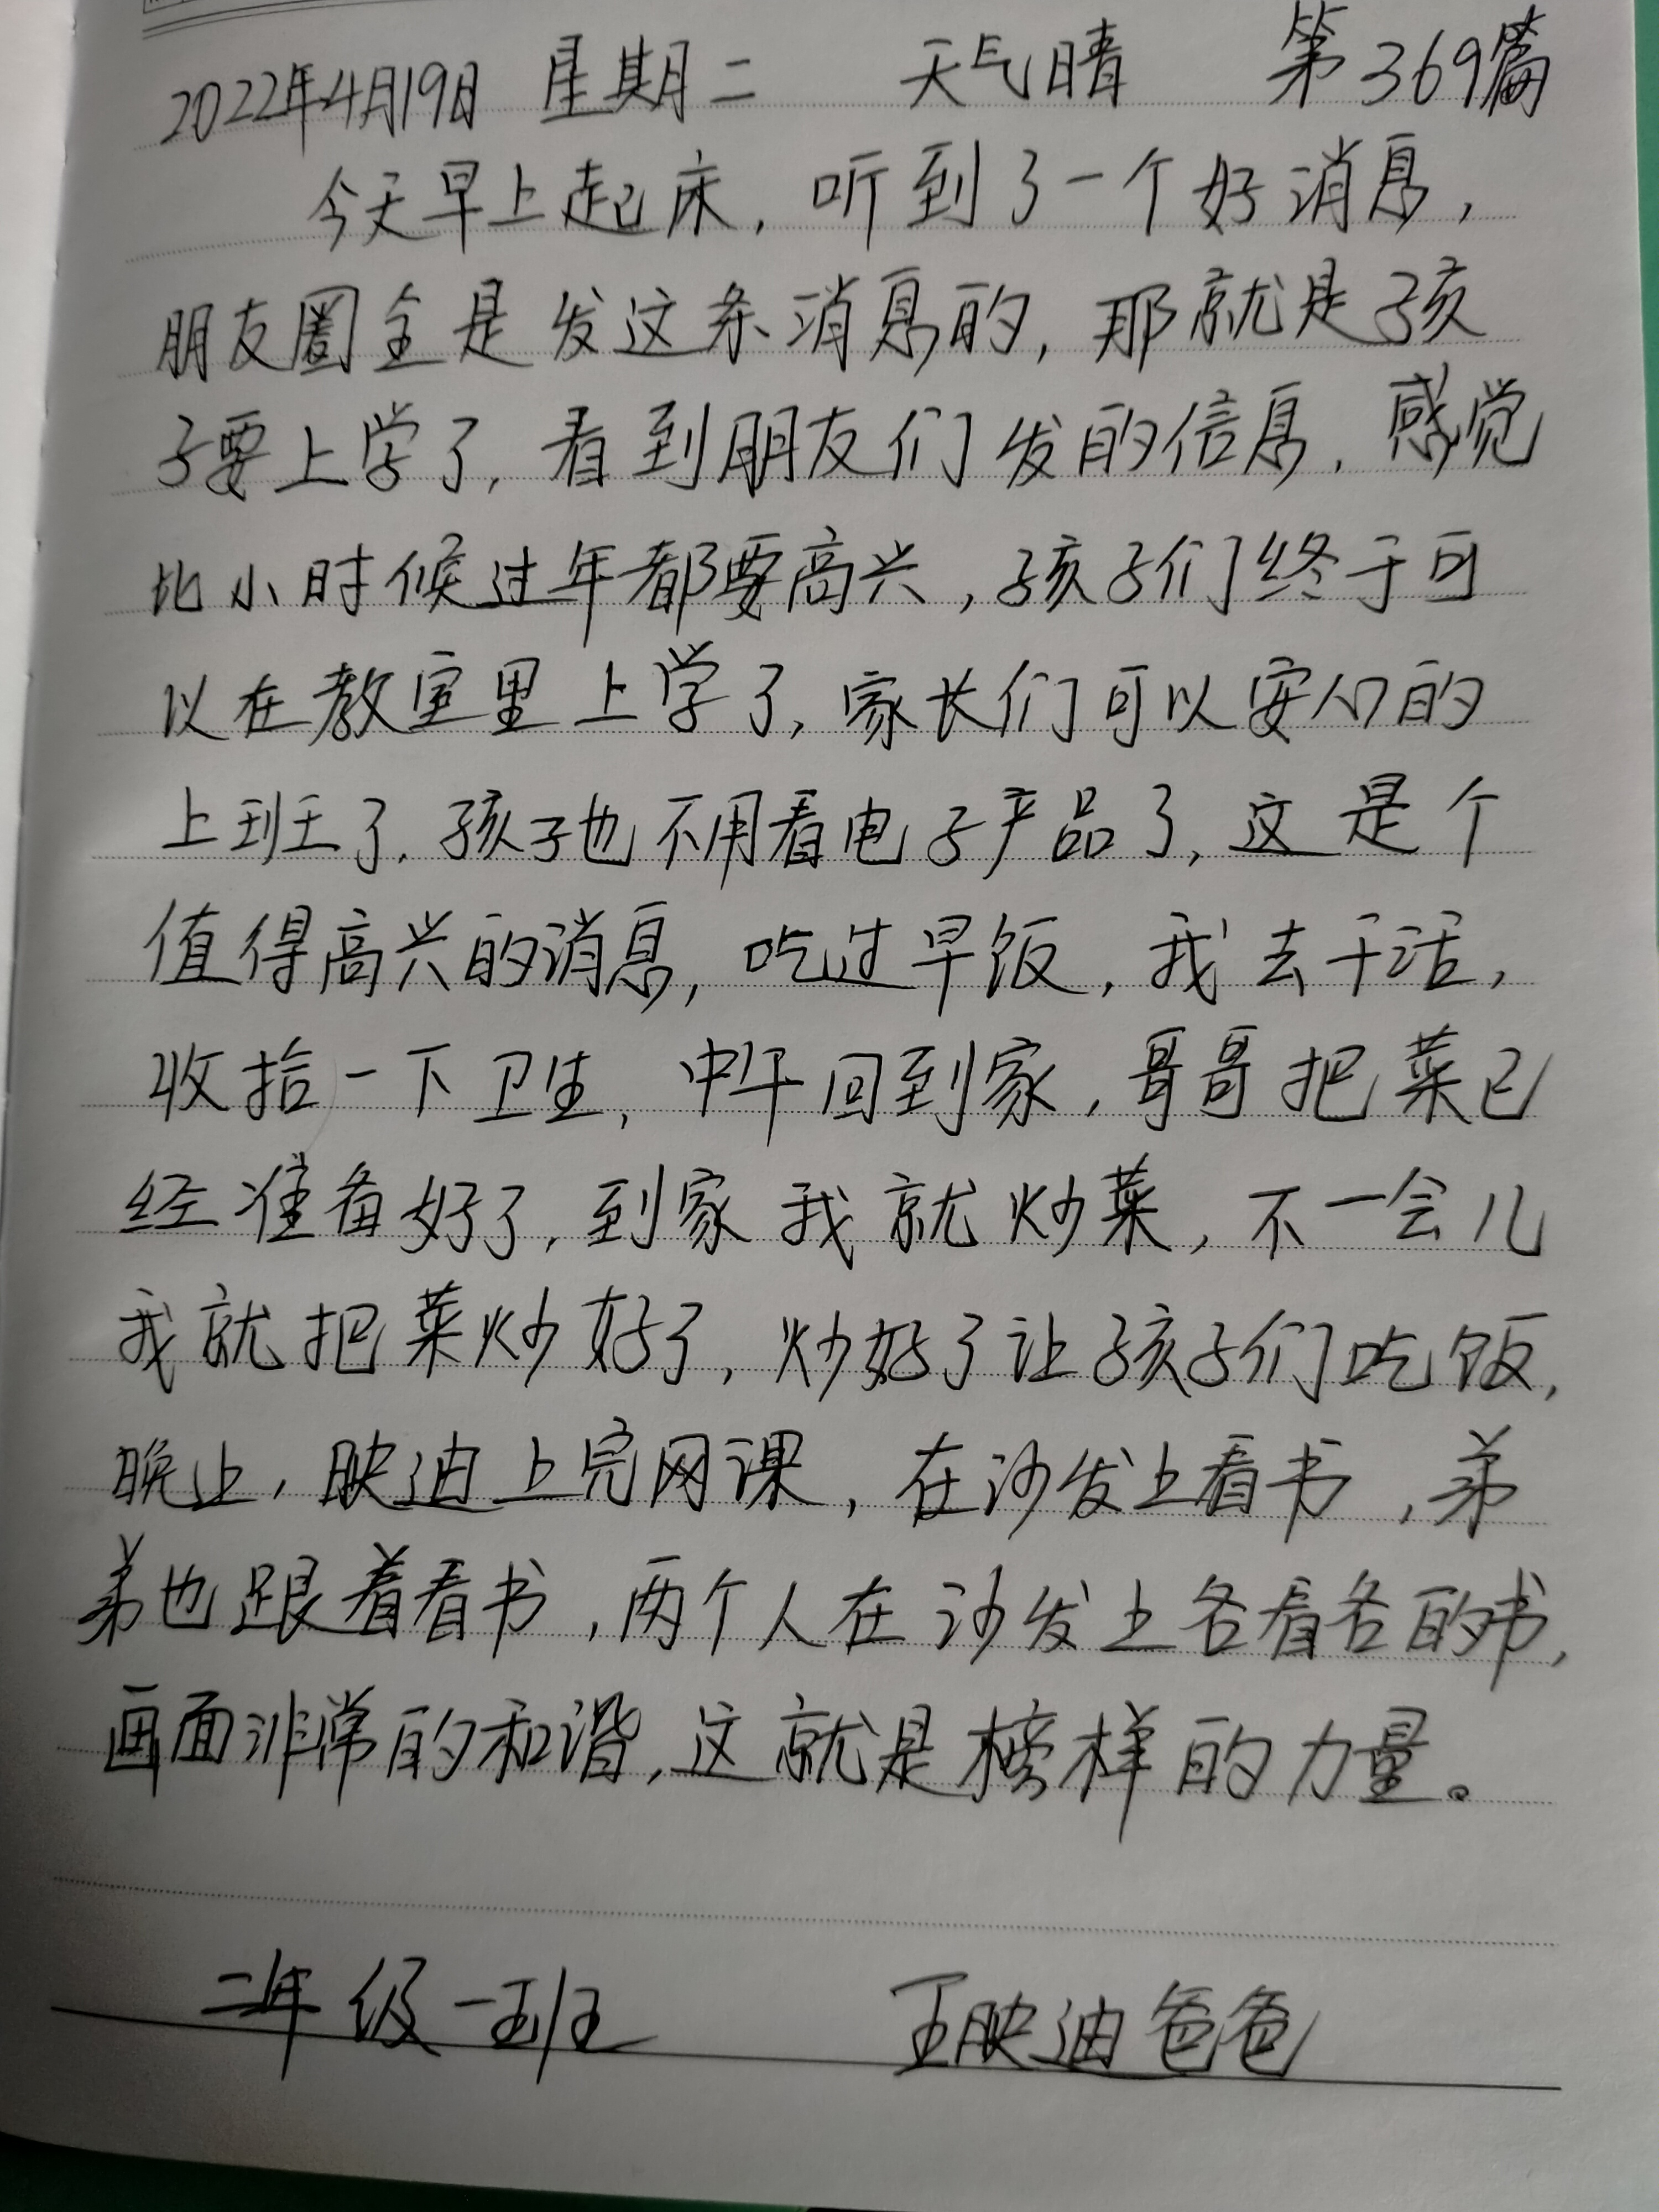 2022年4月19日 星期二 天气晴 第369篇
今天早上起床,听到了一个好消息,
朋友圈全是发这条消息的,那就是孩
子要上学了,看到朋友们发的信息,感觉
比小时候过年都要高兴,孩子们终于可
以在教室里上学了,家长们可以安心的
上班了,孩子也不用看电子产品了,这是个
值得高兴的消息,吃过早饭,我去干活,
收拾一下卫生,中午回到家,哥哥把菜已
经准备好了,到家我就炒菜,不一会儿
我就把菜炒好了,炒好了让孩子们吃饭,
晚上,映迪上完网课,在沙发上看书,弟
弟也跟着看书,两个人在沙发上各看各的书,
画面非常的和谐,这就是榜样的力量。
二年级一班 王映迪爸爸